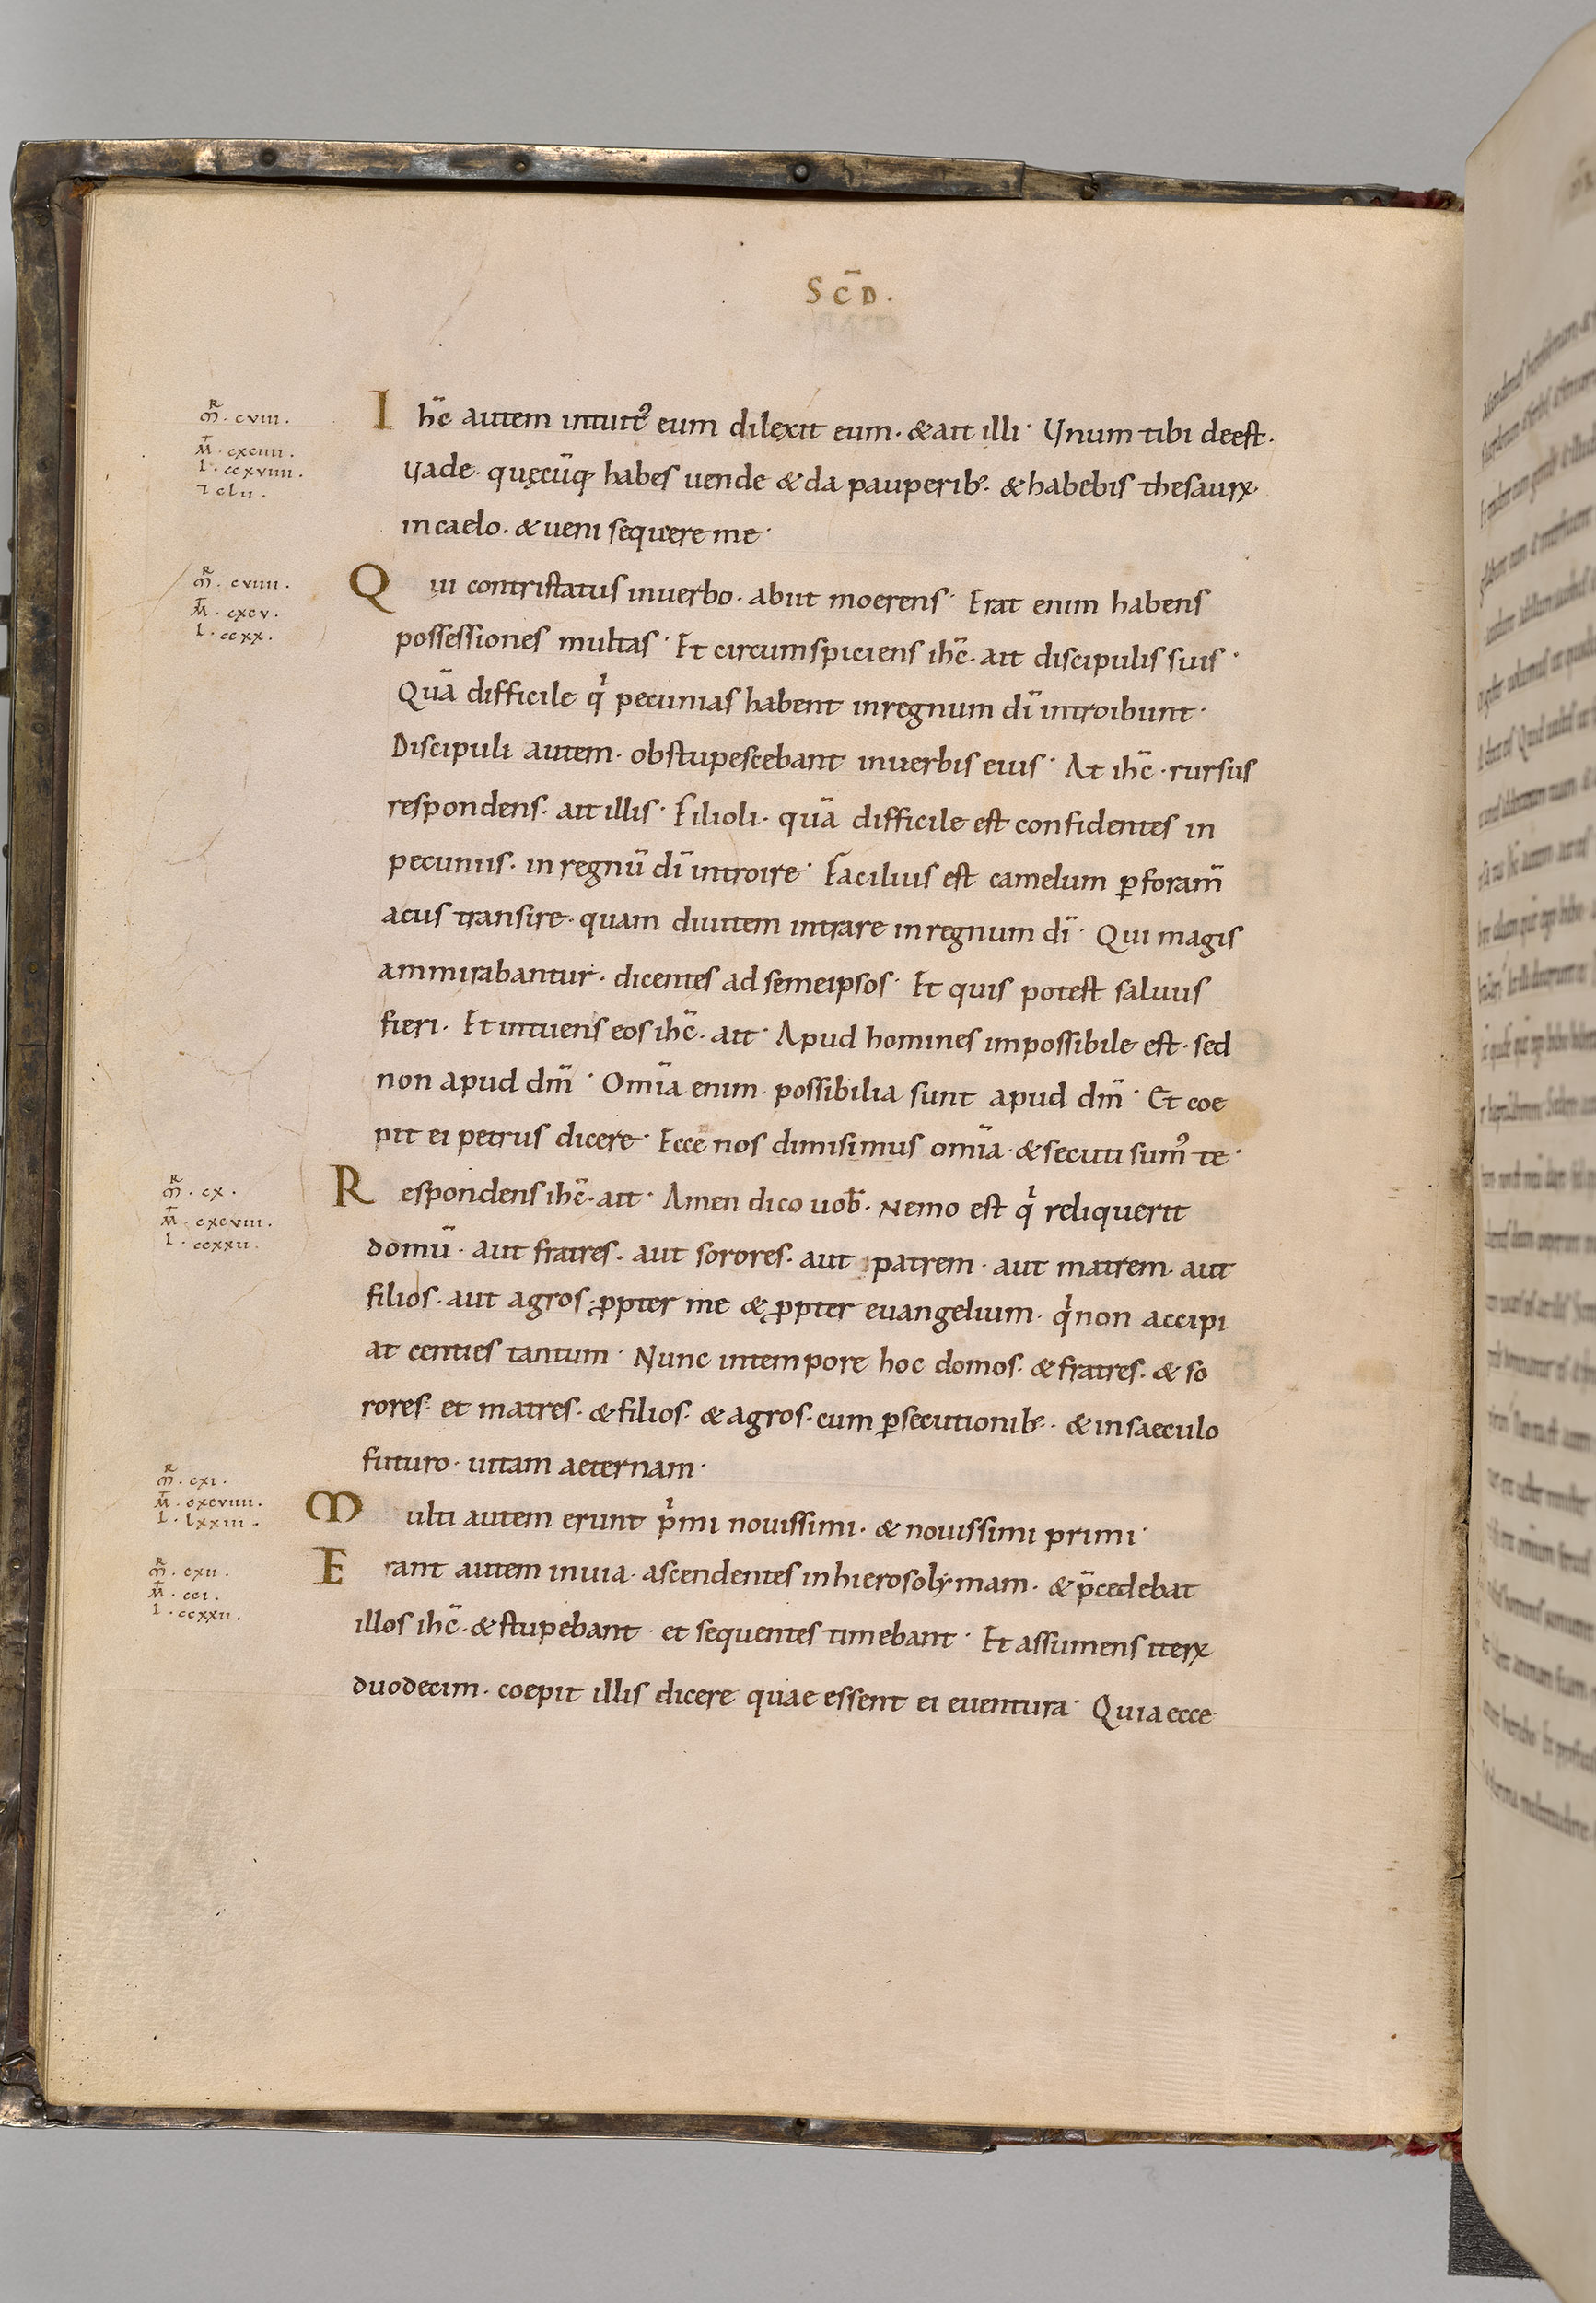 SC̄D.
mͬ. cviii.
M̄. cxciiii.
l. ccxviiii.
⁊ clii.
Ih̄c autem intuit᷒ eum dilexit eum. & ait illi· Vnum tibi deest.
Vade. quęcūq; habes uende & da pauperib;. & habebis thesaurꝝ
in caelo. & ueni sequere me·
mͬ. cviiii.
M̄. cxcv.
l. ccxx.
Qui contristatus in uerbo. abiit moerens· Erat enim habens
possessiones multas· Et circumspiciens ih̄c. ait discipulis suis·
Quā difficile qͥ pecunias habent in regnum dī introibunt·
Discipuli autem. obstupescebant in uerbis eius· At ih̄c. rursus
respondens. ait illis· Filioli. quā difficile est confidentes in
pecuniis. in regnū dī introire· Facilius est camelum ꝑ foram̄
acus transire. quam diuitem intrare in regnum dī· Qui magis
ammirabantur. dicentes ad semeipsos· Et quis potest saluus
fieri. Et intuens eos ih̄c. ait· Apud homines impossibile est. sed
non apud dm̄· Omīa enim. possibilia sunt apud dm̄· Et coe
pit ei petrus dicere· Ecce nos dimisimus omīa. & secuti sum᷒ te·
mͬ. cx.
M̄. cxcviii.
l. ccxxii.
Respondens ih̄c. ait· Amen dico uob̄. Nemo est qͥ reliquerit
domū. aut fratres. aut sorores. aut patrem. aut matrem. aut
filios. aut agros. ꝓpter me & ꝓpter euangelium. qͥ non accipi
at centies tantum· Nunc in tempore hoc domos. & fratres. & so
rores. et matres. & filios. & agros. cum ꝑsecutionib;. & in saeculo
futuro. uitam aeternam·
mͬ. cxi.
M̄. cxcviiii.
l. clxxiii.
Multi autem erunt pͥmi nouissimi. & nouissimi primi·
mͬ. cxii.
M̄. cci.
l. ccxxii.
Erant autem in uia. ascendentes in hierosolymam. & p̄cedebat
illos ih̄c. & stupebant. et sequentes timebant· Et assumens iterꝝ
duodecim. coepit illis dicere quae essent ei euentura· Quia ecce